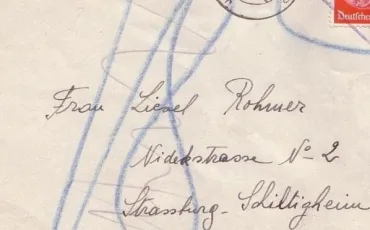 Deutsches
Frau Liesel Rohmer
Nideckstrasse No 2
Strassburg-Schiltigheim